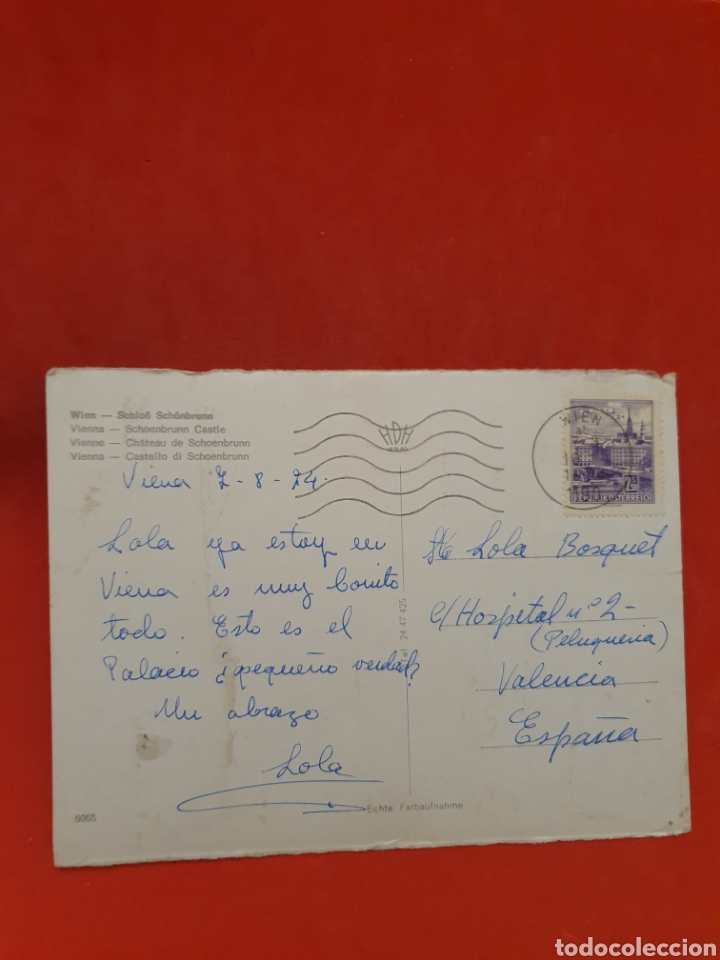 Wien — Schloß Schönbrunn
Vienna — Schoenbrunn Castle
Vienne — Château de Schoenbrunn
Vienna — Castello di Schoenbrunn
Viena 7-8-74.
Lola ya estoy en
Viena es muy bonito
todo. Esto es el
Palacio ¿pequeño verdad?
Un abrazo
Lola
6065
Echte Farbaufnahme
Tel. 24 47 425
HDH
WIEN
REPUBLIK ÖSTERREICH
Sta Lola Bosquet
c/ Hospital nº 2-
(Peluqueria)
Valencia
España
todocoleccion